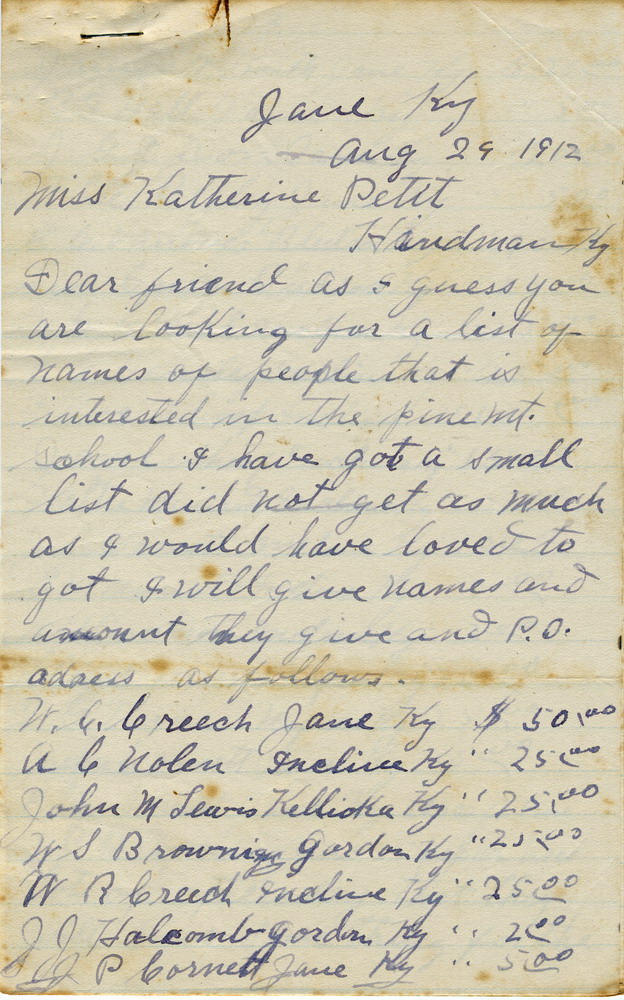 Jane Ky
Aug 29 1912
Miss Katherine Petit
Hindman Ky
Dear friend as I guess you
are looking for a list of
names of people that is
interested in the pine mt.
school I have got a small
list did not get as much
as I would have loved to
got I will give names and
amount they give and P.O.
adress as follows.
W. C. Creech Jane Ky $ 50.00
A C Nolen Incline Ky " 25.00
John M Lewis Kellioka Ky " 25.00
W S Browning Gordon Ky " 25.00
W R Creech Incline Ky " 25.00
J J Halcomb Gordon Ky " 2.00
J P Cornett Jane Ky " 5.00